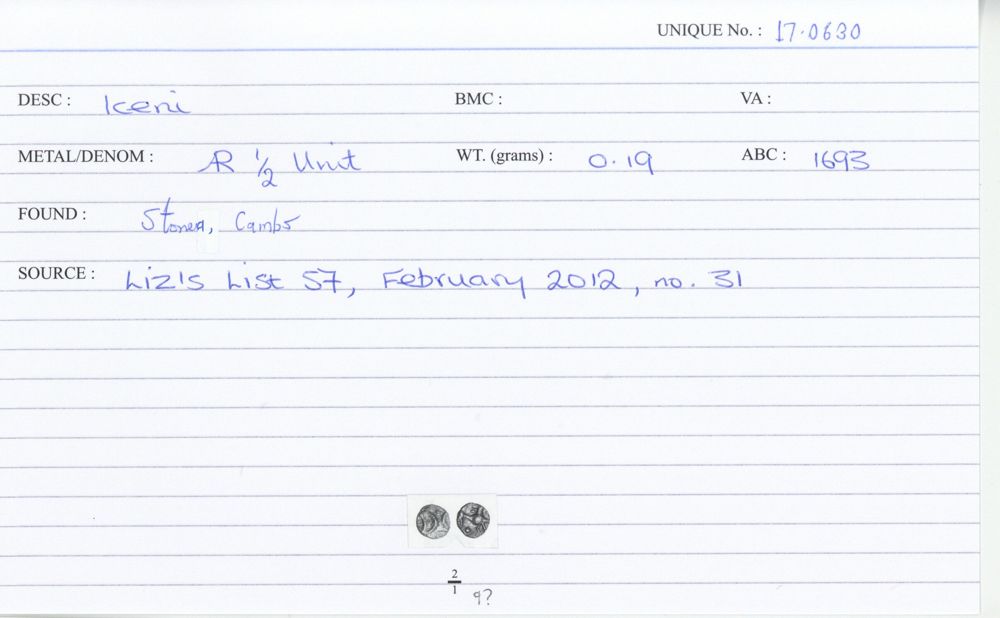 UNIQUE No. : 17.0630
DESC : Iceni BMC : VA :
METAL/DENOM : AR 1/2 Unit WT. (grams) : 0.19 ABC : 1693
FOUND : Stonea, Cambs
SOURCE : Liz's List 57, February 2012, no. 31
2/1
9?